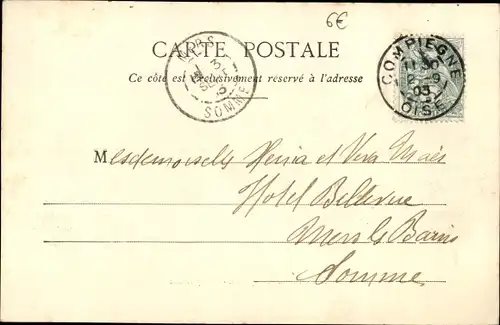 6€
CARTE POSTALE
Ce côté est exclusivement réservé à l'adresse
MERS
SOMME
COMPIEGNE
11 30
8 - 9
03
OISE
Mesdemoiselles Xenia et Vera Maës
Hotel Bellevue
Mers les Bains
Somme